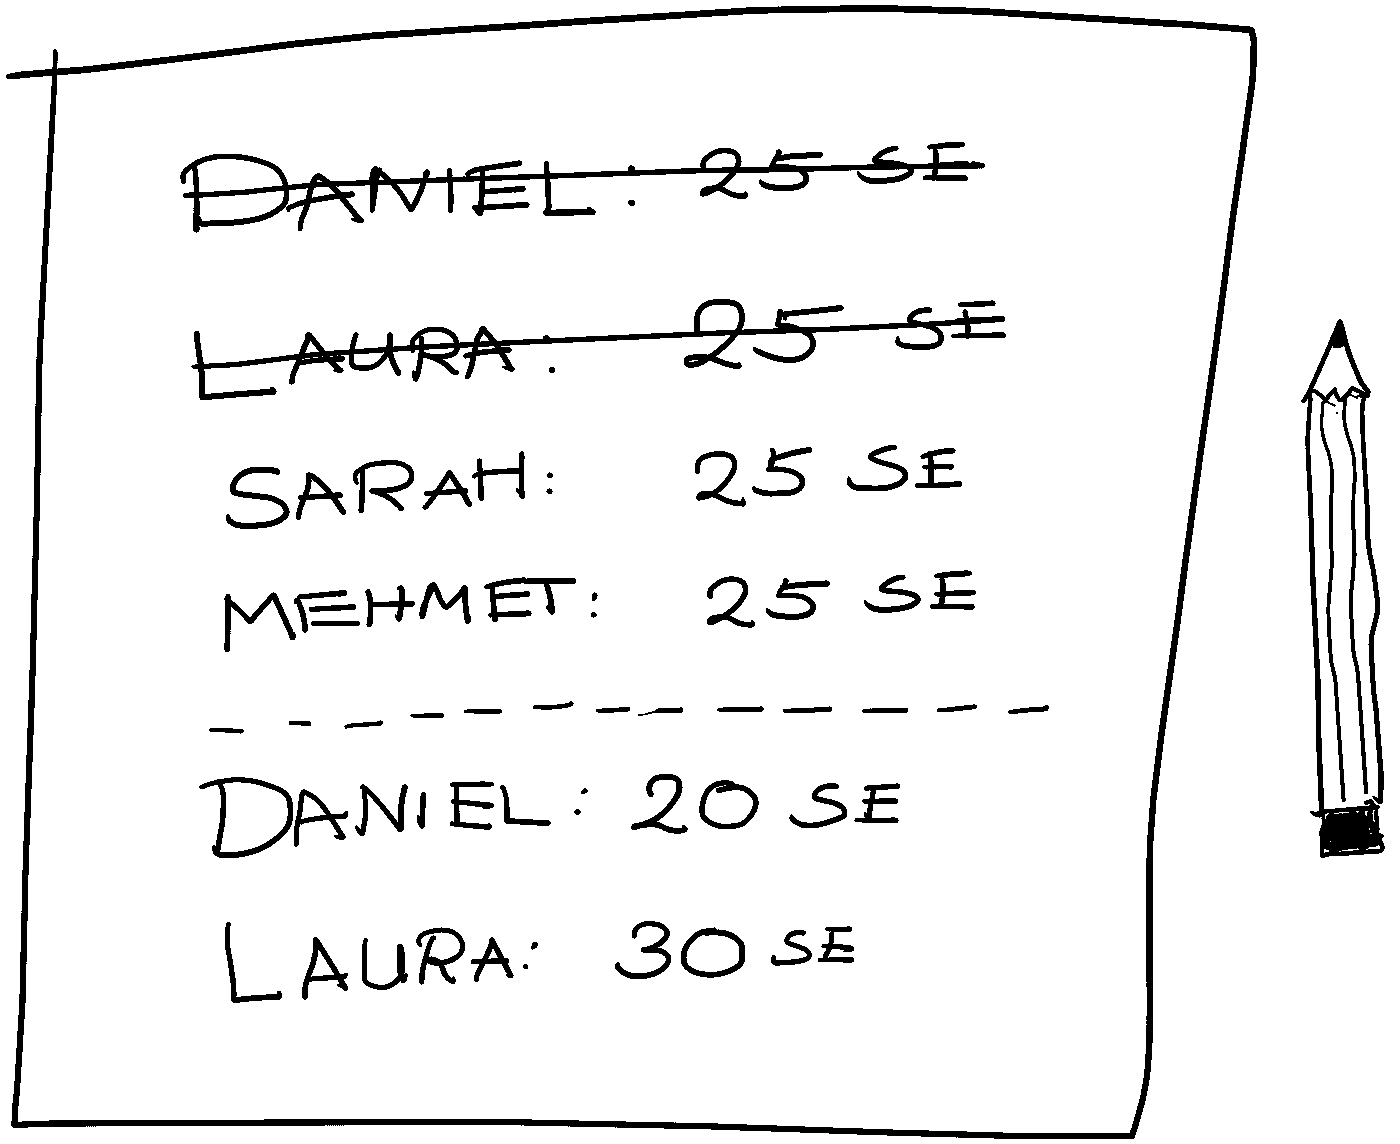 DANIEL: 25 SE
LAURA: 25 SE
SARAH: 25 SE
MEHMET: 25 SE
DANIEL: 20 SE
LAURA: 30 SE